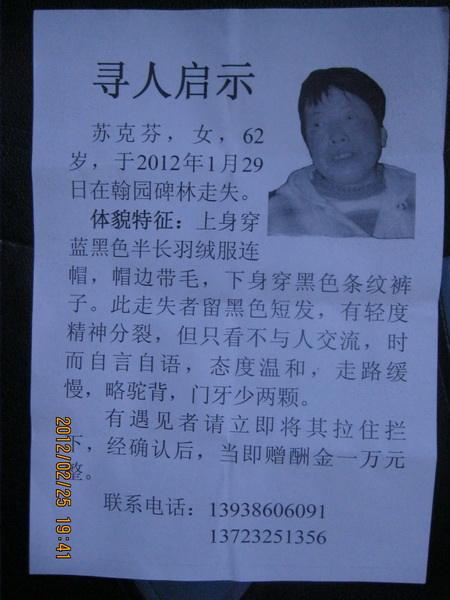 寻人启示
苏克芬，女，62
岁，于2012年1月29
日在翰园碑林走失。
体貌特征：上身穿
蓝黑色半长羽绒服连
帽，帽边带毛，下身穿黑色条纹裤
子。此走失者留黑色短发，有轻度
精神分裂，但只看不与人交流，时
而自言自语，态度温和，走路缓
慢，略驼背，门牙少两颗。
有遇见者请立即将其拉住拦
下，经确认后，当即赠酬金一万元
整。
联系电话：13938606091
13723251356
2012/02/25 19:41